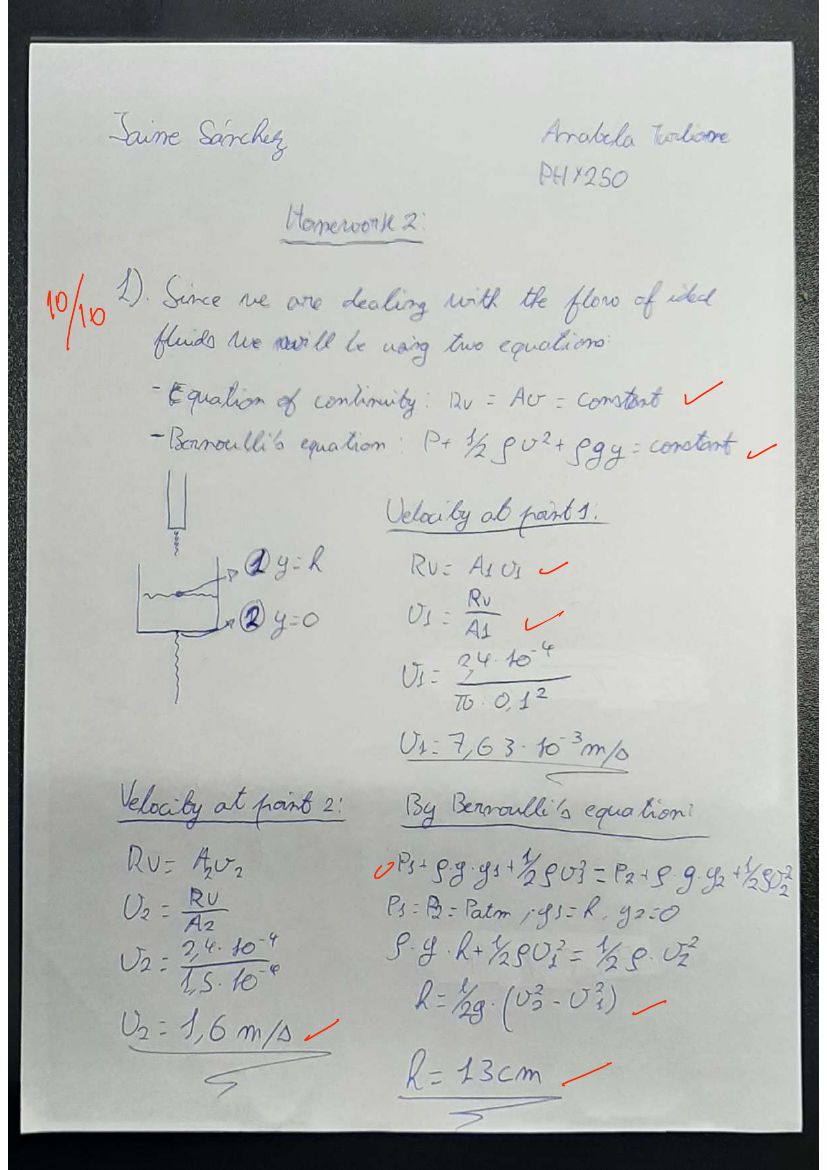 Jaime Sánchez
Anabela
PHY250
Homework 2:
10/10
1). Since we are dealing with the flow of ideal
fluids we will be using two equations:
- Equation of continuity: Rv = Av = constant
- Bernoulli's equation: P + 1/2 ρv² + ρgy = constant
① y=h
② y=0
Velocity at point 1:
Rv = A1 v1
v1 = Rv/A1
v1 = 2,4·10⁻⁴/π·0,1²
v1 = 7,63·10⁻³ m/s
Velocity at point 2:
Rv = A2v2
v2 = Rv/A2
v2 = 2,4·10⁻⁴/1,5·10⁻⁴
v2 = 1,6 m/s
By Bernoulli's equation:
P1 + ρ·g·y1 + 1/2 ρv1² = P2 + ρ·g·y2 + 1/2 ρv2²
P1 = P2 = Patm, y1 = h, y2 = 0
ρ·g·h + 1/2 ρv1² = 1/2 ρ·v2²
h = 1/2g·(v2² - v1²)
h = 13cm